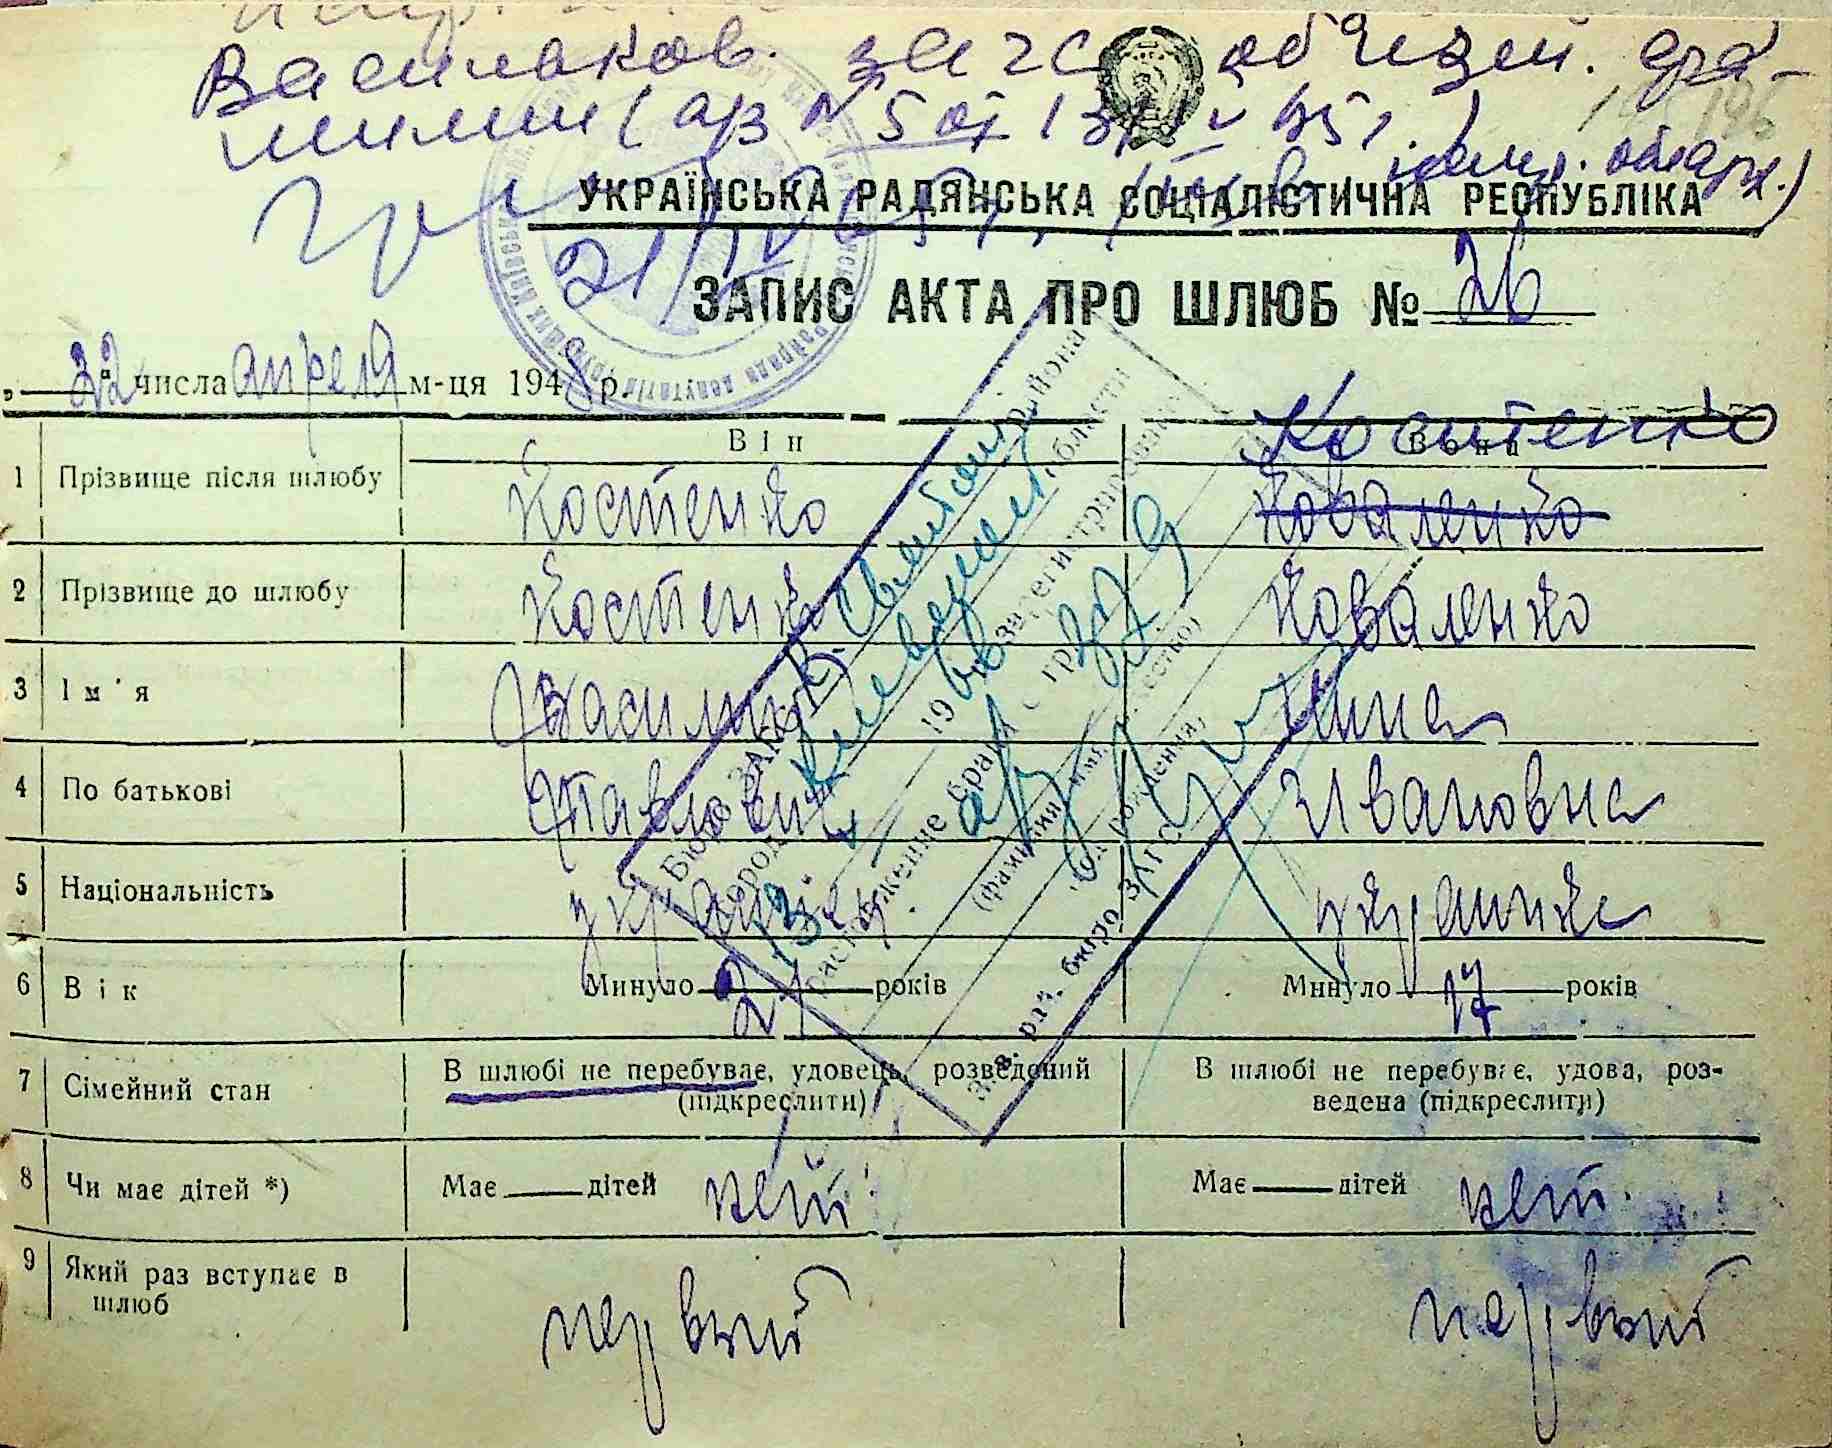 Васильков. загс об'един. фа-
милии (а/з № 5 от 13/IV 65,
УКРАЇНСЬКА РАДЯНСЬКА СОЦІАЛІСТИЧНА РЕСПУБЛІКА
21/IV 65
ЗАПИС АКТА ПРО ШЛЮБ № 26
„22“ числа апреля м-ця 194 р.
Він Вона Костенко
1 Прізвище після шлюбу Костенко Коваленко
2 Прізвище до шлюбу Костенко Коваленко
3 Ім'я Василий Нина
4 По батькові Павлович Ивановна
5 Національність украинец украинка
6 Вік Минуло 21 років Минуло 17 років
7 Сімейний стан В шлюбі не перебуває, удовець, розведений (підкреслити) В шлюбі не перебуває, удова, роз-
ведена (підкреслити)
8 Чи має дітей *) Має — дітей нет Має — дітей нет.
9 Який раз вступає в шлюб первый первый
Бюро ЗАГС района
город области
13 19 зарегистрировано
расторжение брака с гр.
(фамилия, имя, отчество)
а/з год рождения)
Зав. рай. бюро ЗАГС